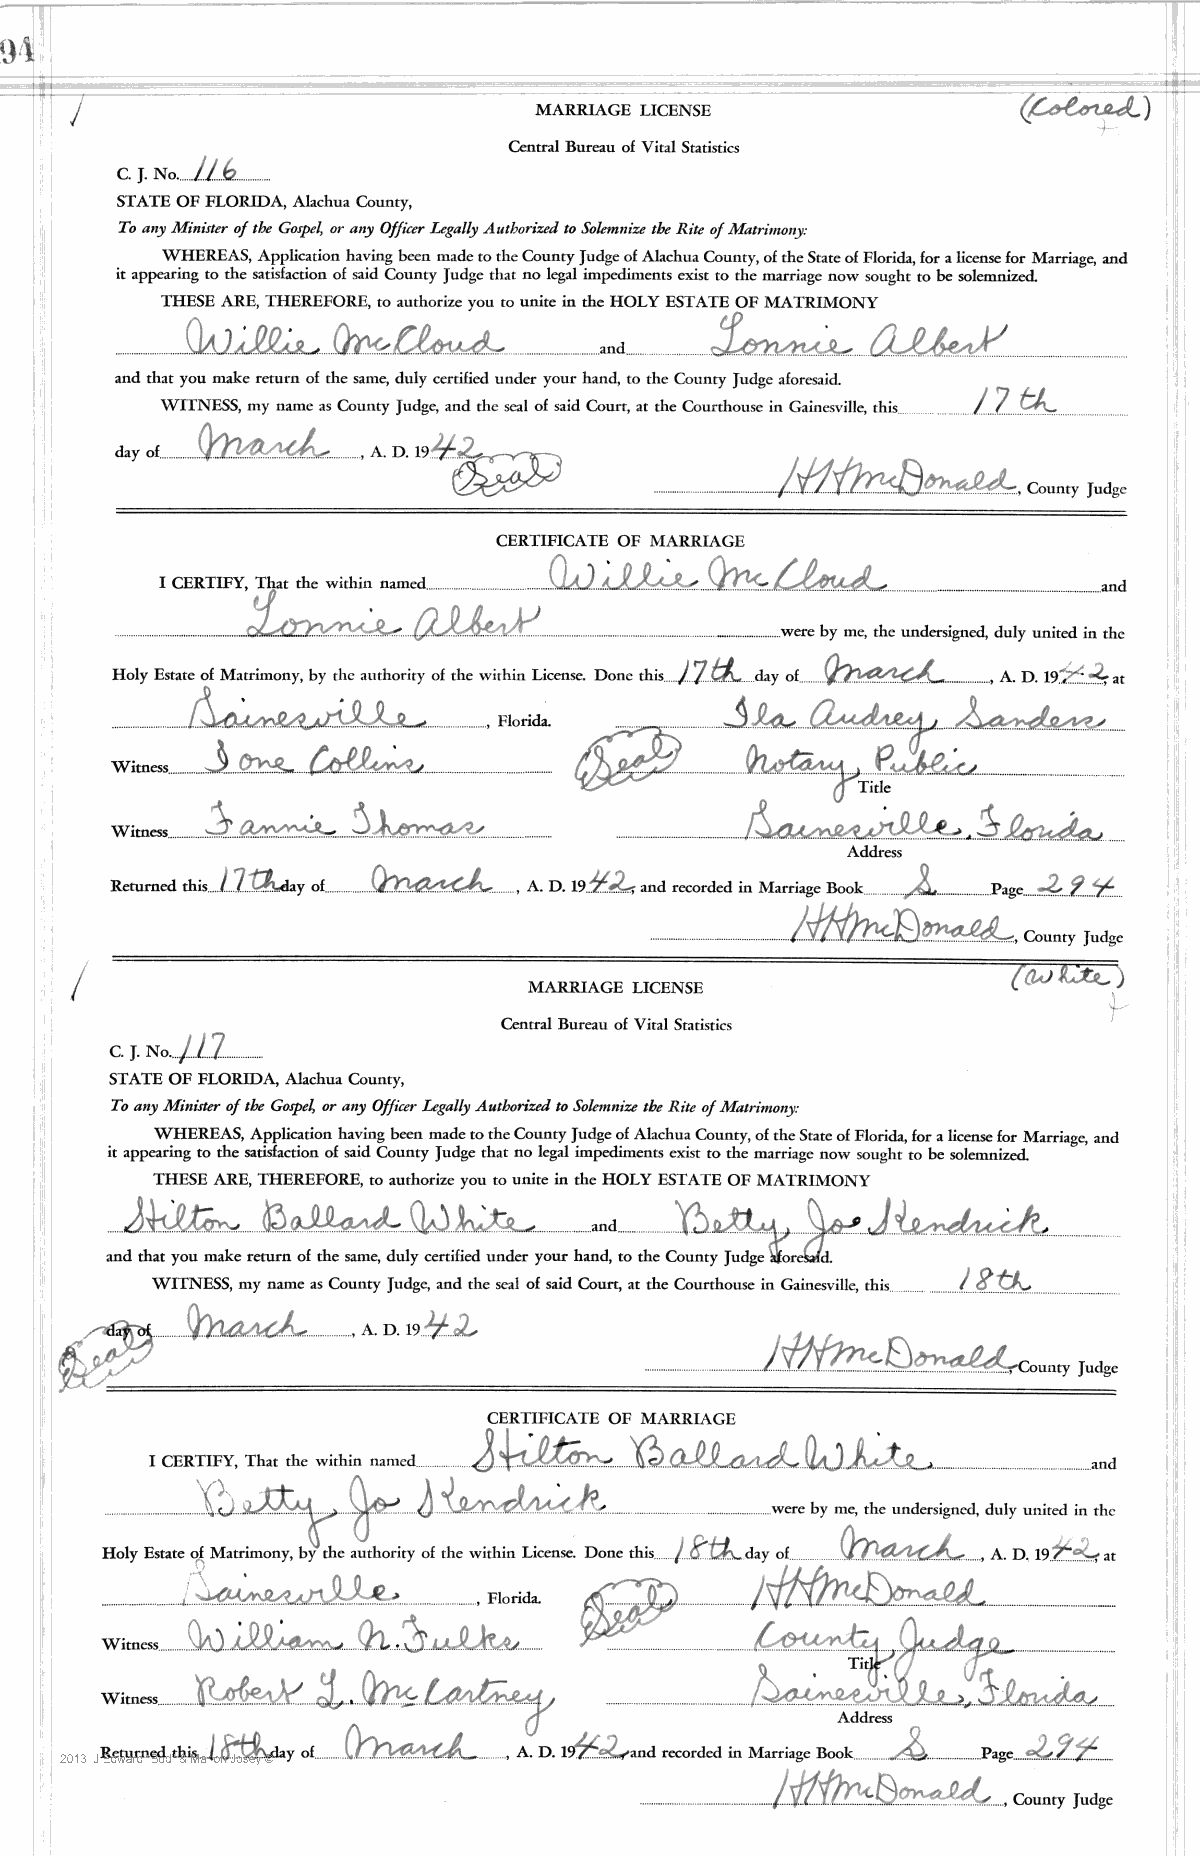 94
(Colored)
MARRIAGE LICENSE
Central Bureau of Vital Statistics
C. J. No. 116
STATE OF FLORIDA, Alachua County,
To any Minister of the Gospel, or any Officer Legally Authorized to Solemnize the Rite of Matrimony:
WHEREAS, Application having been made to the County Judge of Alachua County, of the State of Florida, for a license for Marriage, and
it appearing to the satisfaction of said County Judge that no legal impediments exist to the marriage now sought to be solemnized.
THESE ARE, THEREFORE, to authorize you to unite in the HOLY ESTATE OF MATRIMONY
Willie McCloud and Lonnie Albert
and that you make return of the same, duly certified under your hand, to the County Judge aforesaid.
WITNESS, my name as County Judge, and the seal of said Court, at the Courthouse in Gainesville, this 17th
day of March, A. D. 1942
(Seal) HHMcDonald, County Judge
CERTIFICATE OF MARRIAGE
I CERTIFY, That the within named Willie McCloud and
Lonnie Albert were by me, the undersigned, duly united in the
Holy Estate of Matrimony, by the authority of the within License. Done this 17th day of March, A. D. 1942, at
Gainesville, Florida. Ila Audrey Sanders
Witness Ione Collins (Seal) Notary Public
Title
Witness Fannie Thomas Gainesville, Florida
Address
Returned this 17th day of March, A. D. 1942, and recorded in Marriage Book S Page 294
HHMcDonald, County Judge
(White)
MARRIAGE LICENSE
Central Bureau of Vital Statistics
C. J. No. 117
STATE OF FLORIDA, Alachua County,
To any Minister of the Gospel, or any Officer Legally Authorized to Solemnize the Rite of Matrimony:
WHEREAS, Application having been made to the County Judge of Alachua County, of the State of Florida, for a license for Marriage, and
it appearing to the satisfaction of said County Judge that no legal impediments exist to the marriage now sought to be solemnized.
THESE ARE, THEREFORE, to authorize you to unite in the HOLY ESTATE OF MATRIMONY
Hilton Ballard White and Betty Jo Kendrick
and that you make return of the same, duly certified under your hand, to the County Judge aforesaid.
WITNESS, my name as County Judge, and the seal of said Court, at the Courthouse in Gainesville, this 18th
day of March, A. D. 1942
(Seal) HHMcDonald, County Judge
CERTIFICATE OF MARRIAGE
I CERTIFY, That the within named Hilton Ballard White and
Betty Jo Kendrick were by me, the undersigned, duly united in the
Holy Estate of Matrimony, by the authority of the within License. Done this 18th day of March, A. D. 1942, at
Gainesville, Florida. (Seal) HHMcDonald
Witness William N. Fulks County Judge
Title
Witness Robert L. McCartney Gainesville, Florida
Address
Returned this 18th day of March, A. D. 1942, and recorded in Marriage Book S Page 294
2013 J Edward
HHMcDonald, County Judge